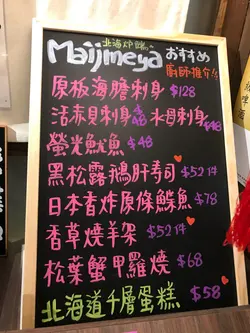 北海炉端
Maijmeya おすすめ
廚師推介!!
原板海膽刺身 $128
活赤貝刺身 $48 水母刺身 $48
螢光魷魚 $48
黑松露鵝肝寿司 $52 14
日本香炸原條鰈魚 $78
香草燒羊架 $52 14
松葉蟹甲羅燒 $68
北海道千層蛋糕 $58